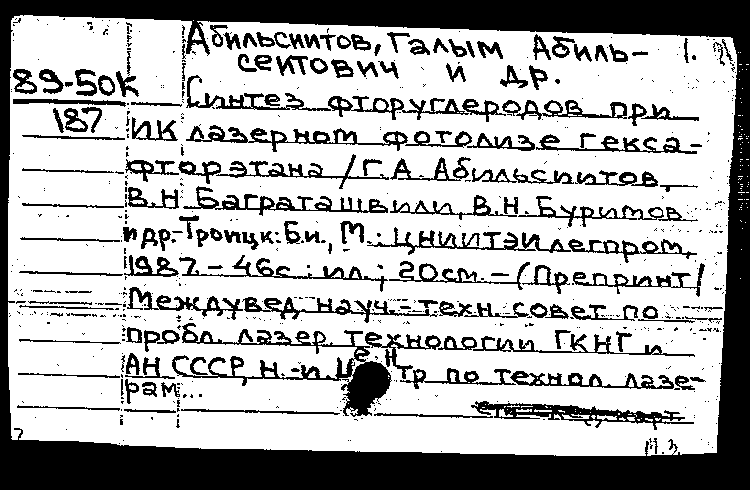 Абильсиитов, Галым Абиль- 1.
сеитович и др.
89-50К
187
Синтез фторуглеродов при
ИК лазерном фотолизе гекса-
фторэтана / Г.А. Абильсиитов,
В.Н. Баграташвили, В.Н. Буримов
и др.- Троицк: Б.и., М.: ЦНИИТЭИлегпром,
1987. - 46с : ил.; 20см. - (Препринт /
Междувед. науч.-техн. совет по
пробл. лазер. технологии ГКНТ и
АН СССР, Н.-и. центр по технол. лазе-
рам...
М.З.